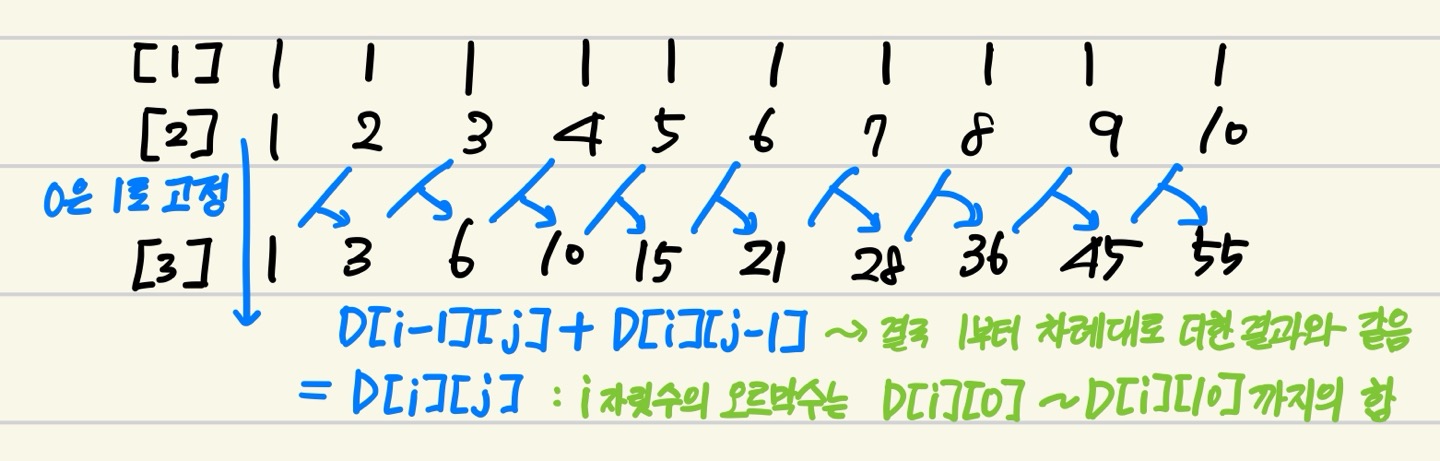 [1] 1 1 1 1 1 1 1 1 1 1
[2] 1 2 3 4 5 6 7 8 9 10
0은 1로 고정
[3] 1 3 6 10 15 21 28 36 45 55
D[i-1][j] + D[i][j-1] ~> 결국 1부터 차례대로 더한 결과와 같음
= D[i][j] : i 자릿수의 오르막수는 D[i][0] ~ D[i][10] 까지의 합